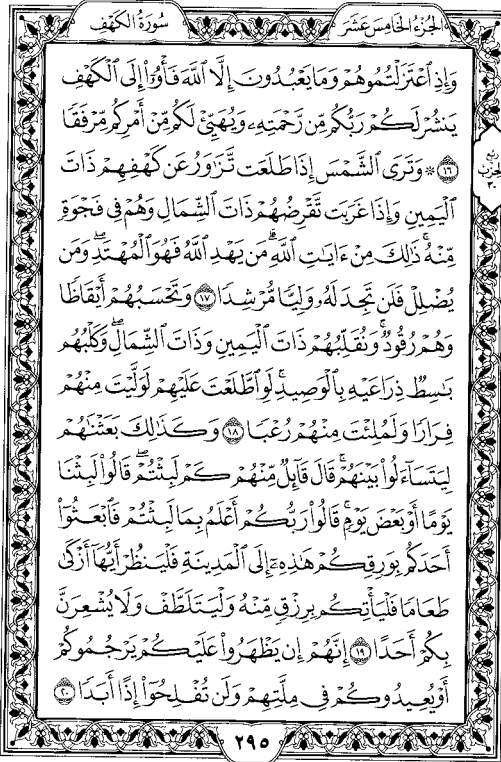 الجزء الخامس عشر
سورة الكهف
وَإِذِ ٱعۡتَزَلۡتُمُوهُمۡ وَمَا يَعۡبُدُونَ إِلَّا ٱللَّهَ فَأۡوُۥٓاْ إِلَى ٱلۡكَهۡفِ
يَنشُرۡ لَكُمۡ رَبُّكُم مِّن رَّحۡمَتِهِۦ وَيُهَيِّئۡ لَكُم مِّنۡ أَمۡرِكُم مِّرۡفَقٗا
ربع الحزب ٣٠
١٦ ۞ وَتَرَى ٱلشَّمۡسَ إِذَا طَلَعَت تَّزَٰوَرُ عَن كَهۡفِهِمۡ ذَاتَ
ٱلۡيَمِينِ وَإِذَا غَرَبَت تَّقۡرِضُهُمۡ ذَاتَ ٱلشِّمَالِ وَهُمۡ فِي فَجۡوَةٖ
مِّنۡهُۚ ذَٰلِكَ مِنۡ ءَايَٰتِ ٱللَّهِۗ مَن يَهۡدِ ٱللَّهُ فَهُوَ ٱلۡمُهۡتَدِۖ وَمَن
يُضۡلِلۡ فَلَن تَجِدَ لَهُۥ وَلِيّٗا مُّرۡشِدٗا ١٧ وَتَحۡسَبُهُمۡ أَيۡقَاظٗا
وَهُمۡ رُقُودٞۚ وَنُقَلِّبُهُمۡ ذَاتَ ٱلۡيَمِينِ وَذَاتَ ٱلشِّمَالِۖ وَكَلۡبُهُم
بَٰسِطٞ ذِرَاعَيۡهِ بِٱلۡوَصِيدِۚ لَوِ ٱطَّلَعۡتَ عَلَيۡهِمۡ لَوَلَّيۡتَ مِنۡهُمۡ
فِرَارٗا وَلَمُلِئۡتَ مِنۡهُمۡ رُعۡبٗا ١٨ وَكَذَٰلِكَ بَعَثۡنَٰهُمۡ
لِيَتَسَآءَلُواْ بَيۡنَهُمۡۚ قَالَ قَآئِلٞ مِّنۡهُمۡ كَمۡ لَبِثۡتُمۡۖ قَالُواْ لَبِثۡنَا
يَوۡمًا أَوۡ بَعۡضَ يَوۡمٖۚ قَالُواْ رَبُّكُمۡ أَعۡلَمُ بِمَا لَبِثۡتُمۡ فَٱبۡعَثُوٓاْ
أَحَدَكُم بِوَرِقِكُمۡ هَٰذِهِۦٓ إِلَى ٱلۡمَدِينَةِ فَلۡيَنظُرۡ أَيُّهَآ أَزۡكَىٰ
طَعَامٗا فَلۡيَأۡتِكُم بِرِزۡقٖ مِّنۡهُ وَلۡيَتَلَطَّفۡ وَلَا يُشۡعِرَنَّ
بِكُمۡ أَحَدًا ١٩ إِنَّهُمۡ إِن يَظۡهَرُواْ عَلَيۡكُمۡ يَرۡجُمُوكُمۡ
أَوۡ يُعِيدُوكُمۡ فِي مِلَّتِهِمۡ وَلَن تُفۡلِحُوٓاْ إِذًا أَبَدٗا ٢٠
٢٩٥